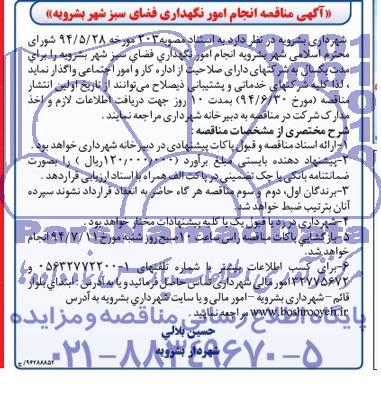 «آگهی مناقصه انجام امور نگهداری فضای سبز شهر بشرویه»
شهرداری بشرویه در نظر دارد به استناد مصوبه ۲۰۳ مورخه ۹۴/۵/۲۸ شورای
محترم اسلامی شهر بشرویه انجام امور نگهداری فضای سبز شهر بشرویه را برای
مدت یکسال به شرکتهای دارای صلاحیت از اداره کار و امور اجتماعی واگذار نماید
، لذا کلیه شرکتهای خدماتی و پشتیبانی ذیصلاح می‌توانند از تاریخ اولین انتشار
مناقصه (مورخ ۹۴/۶/۳۰) بمدت ۱۰ روز جهت دریافت اطلاعات لازم و اخذ
مدارک شرکت در مناقصه به دبیرخانه شهرداری مراجعه نمایند .
شرح مختصری از مشخصات مناقصه :
۱-ارائه اسناد مناقصه و قبول پاکات پیشنهادی در دبیرخانه شهرداری خواهد بود .
۲-پیشنهاد دهنده بایستی مبلغ برآورد (۱۲۰,۰۰۰,۰۰۰ریال ) را بصورت
ضمانتنامه بانکی یا چک تضمینی در پاکت الف همراه با اسناد ارزیابی قراردهد .
۳-برندگان اول، دوم و سوم مناقصه هر گاه حاضر به انعقاد قرارداد نشوند سپرده
آنان بترتیب ضبط خواهد شد.
۴-شهرداری در رد یا قبول یک یا کلیه پیشنهادات مختار خواهد بود .
۵-بازگشایی پاکات مناقصه راس ساعت ۱۰صبح روز شنبه مورخ ۹۴/۷/۱۱ انجام
خواهد شد.
۶-برای کسب اطلاعات بیشتر با شماره تلفنهای ۰۵۶۳۲۷۷۲۲۰۰۱
۳۲۷۷۵۶۷۲ امور مالی شهرداری تماس حاصل فرمائید و یا به آدرس : ابتدای بلوار
قائم – شهرداری بشرویه – امور مالی و یا سایت شهرداری بشرویه به آدرس
www.boshrooyeh.ir مراجعه نمایید .
حسین بلالی
شهردار بشرویه
پایگاه اطلاع رسانی مناقصه و مزایده
۰۲۱-۸۸۳۴۹۶۷۰-۵
۹۶۲۸۸۸۵۲/ح